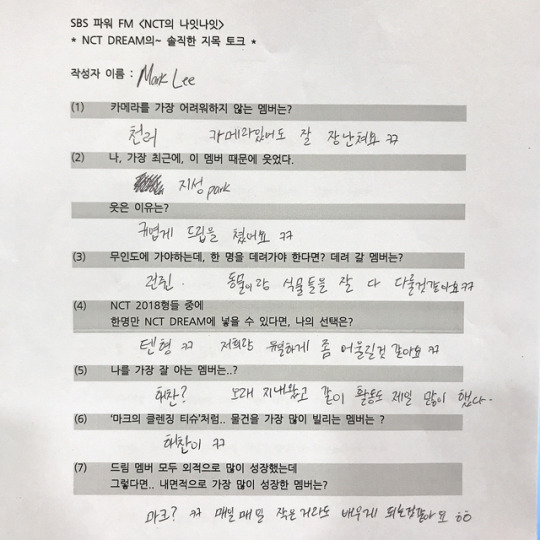 SBS 파워 FM <NCT의 나잇나잇>
* NCT DREAM의~ 솔직한 지목 토크 *
작성자 이름 : Mark Lee
(1) 카메라를 가장 어려워하지 않는 멤버는?
천러 카메라있어도 잘 장난쳐요 ㅋㅋ
(2) 나, 가장 최근에, 이 멤버 때문에 웃었다.
지성 park
웃은 이유는?
귀엽게 드립을 쳤어요 ㅋㅋ
(3) 무인도에 가야하는데, 한 명을 데려가야 한다면? 데려 갈 멤버는?
런쥔. 동물이랑 식물들을 잘 다 다룰것같아요ㅋㅋ
(4) NCT 2018형들 중에
한명만 NCT DREAM에 넣을 수 있다면, 나의 선택은?
텐형 ㅋㅋ 저희랑 유일하게 좀 어울릴것 같아요 ㅋㅋ
(5) 나를 가장 잘 아는 멤버는..?
해찬? 오래 지내왔고 같이 활동도 제일 많이 했다.
(6) '마크의 클렌징 티슈'처럼.. 물건을 가장 많이 빌리는 멤버는 ?
해찬이 ㅋㅋ
(7) 드림 멤버 모두 외적으로 많이 성장했는데
그렇다면.. 내면적으로 가장 많이 성장한 멤버는?
마크? ㅋㅋ 매일매일 작은거라도 배우게 되는것같아요 ㅎㅎ